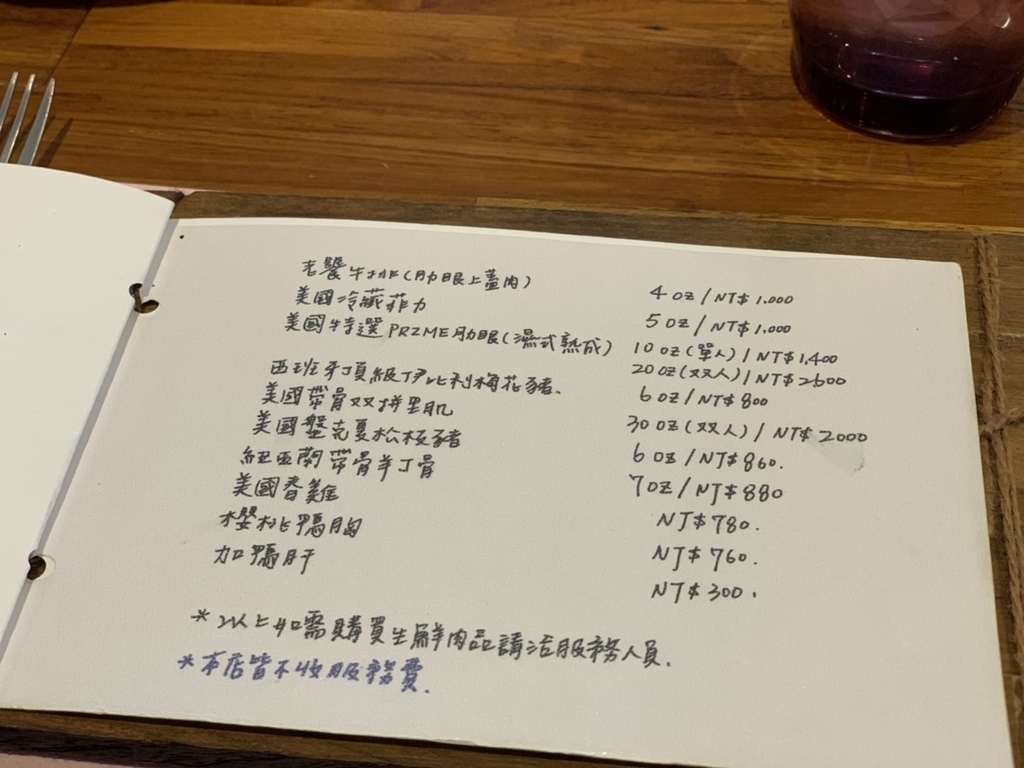 老饕牛排(肋眼上蓋肉) 4 oz / NT$ 1.000
美國冷藏菲力 5 oz / NT$ 1.000
美國特選PRIME肋眼(濕式熟成) 10 oz (單人) / NT$ 1,400
20 oz (双人) / NT$ 2600
西班牙頂級伊比利梅花豬. 6 oz / NT$ 800
美國帶骨双拼里肌 30 oz (双人) / NT$ 2000
美國盤克夏松板豬 6 oz / NT$ 860.
紐西蘭帶骨羊丁骨 7 oz / NT$ 880
美國春雞 NT$ 780.
櫻桃鴨胸 NT$ 760.
加鴨肝 NT$ 300.
*以上如需購買生鮮肉品請洽服務人員.
*本店皆不收服務費.